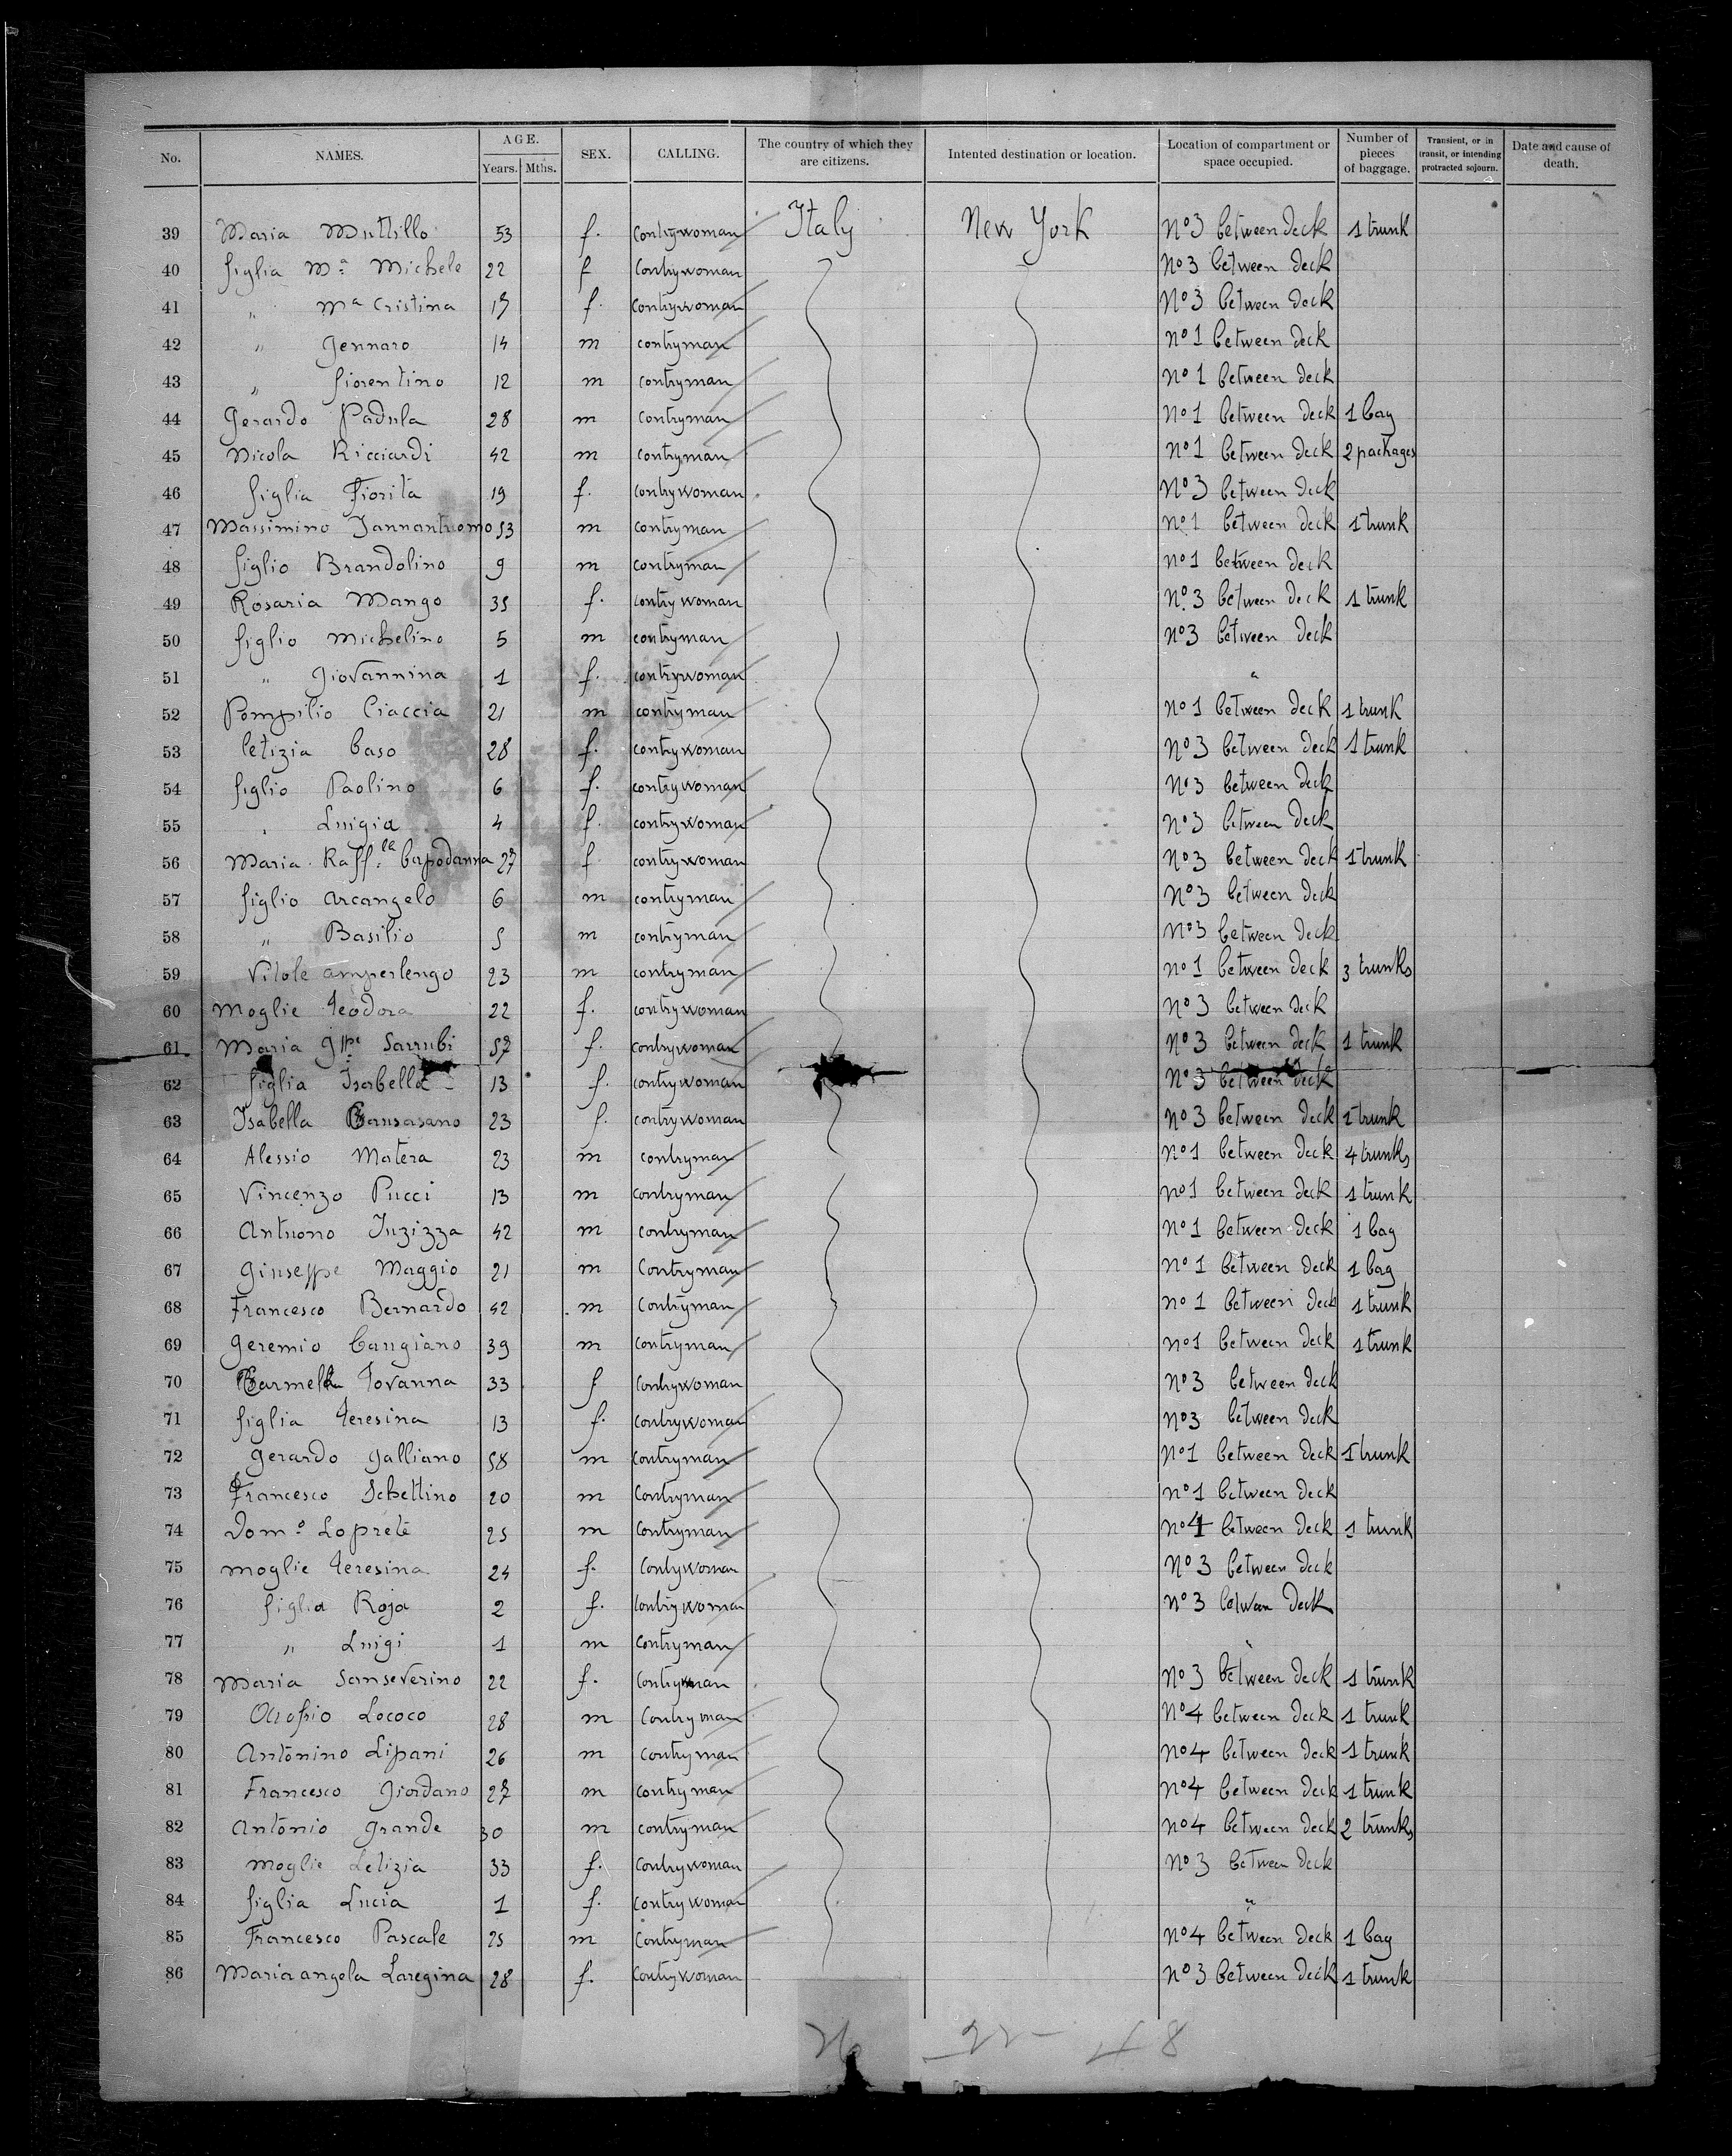 No. NAMES. AGE. Years. Mths. SEX. CALLING. The country of which they are citizens. Intented destination or location. Location of compartment or space occupied. Number of pieces of baggage. Transient, or in transit, or intending protracted sojourn. Date and cause of death.
39 Maria Muttillo 53 f. Contrywoman Italy New York No 3 between deck 1 trunk
40 figlia Ma Michele 22 f Contrywoman No 3 between deck
41 " Ma Cristina f. Contrywoman No 3 between deck
42 " Gennaro 14 m contryman No 1 between deck
43 " fiorentino 12 m contryman No 1 between deck
44 Gerardo Padula 28 m contryman No 1 between deck 1 bag
45 Nicola Ricciardi 42 m contryman No 1 between deck 2 packages
46 figlia Fiorita 19 f. contrywoman No 3 between deck
47 Massimino Iannantuomo 53 m contryman No 1 between deck 1 trunk
48 figlio Brandolino 9 m contryman No 1 between deck
49 Rosaria Mango 35 f. contrywoman No 3 between deck 1 trunk
50 figlio Michelino 5 m contryman No 3 between deck
51 " Giovannina 1 f. contrywoman "
52 Pompilio Ciaccia 21 m contryman No 1 between deck 1 trunk
53 Letizia Caso 28 f. contrywoman No 3 between deck 1 trunk
54 figlio Paolino 6 f. contrywoman No 3 between deck
55 " Luigia 4 f. contrywoman No 3 between deck
56 Maria Raff.la Capodanna 27 f contrywoman No 3 between deck 1 trunk
57 figlio Arcangelo 6 m contryman No 3 between deck
58 " Basilio 5 m contryman No 3 between deck
59 Vitole Amperlengo 23 m contryman No 1 between deck 3 trunks
60 Moglie Teodora 22 f. contrywoman No 3 between deck
61 Maria Gppe Sarrubi 57 f. contrywoman No 3 between deck 1 trunk
62 figlia Isabella 13 f. contrywoman No 3 between deck
63 Isabella 23 f. contrywoman No 3 between deck 1 trunk
64 Alessio Matera 23 m contryman No 1 between deck 4 trunks
65 Vincenzo Pucci 13 m contryman No 1 between deck 1 trunk
66 Antuono Inzizza 42 m contryman No 1 between deck 1 bag
67 Giuseppe Maggio 21 m Contryman No 1 between deck 1 bag
68 Francesco Bernardo 42 m Contryman No 1 between deck 1 trunk
69 Geremio Cangiano 39 m contryman No 1 between deck 1 trunk
70 Carmella Iovanna 33 f contrywoman No 3 between deck
71 figlia Teresina 13 f. contrywoman No 3 between deck
72 Gerardo Galliano 58 m contryman No 1 between deck 1 trunk
73 Francesco Schettino 20 m Contryman No 1 between deck
74 Dom.o Loprete 25 m Contryman No 4 between deck 1 trunk
75 moglie Teresina 24 f. Contrywoman No 3 between deck
76 figlia Rosa 2 f. Contrywoman No 3 between Deck
77 " Luigi 1 m Contryman "
78 Maria Sanseverino 22 f. No 3 between deck 1 trunk
79 Lococo 28 m Contryman No 4 between deck 1 trunk
80 Antonino Lipani 26 m contryman No 4 between deck 1 trunk
81 Francesco Giordano 27 m contryman No 4 between deck 1 trunk
82 Antonio Grande 30 m contryman No 4 between deck 2 trunks
83 Moglie Letizia 33 f. contrywoman No 3 between deck
84 figlia Lucia 1 f. contrywoman "
85 Francesco Pascale 25 m Contryman No 4 between deck 1 bag
86 Mariaangela Laregina 28 f. Contrywoman No 3 between deck 1 trunk
26 22 48